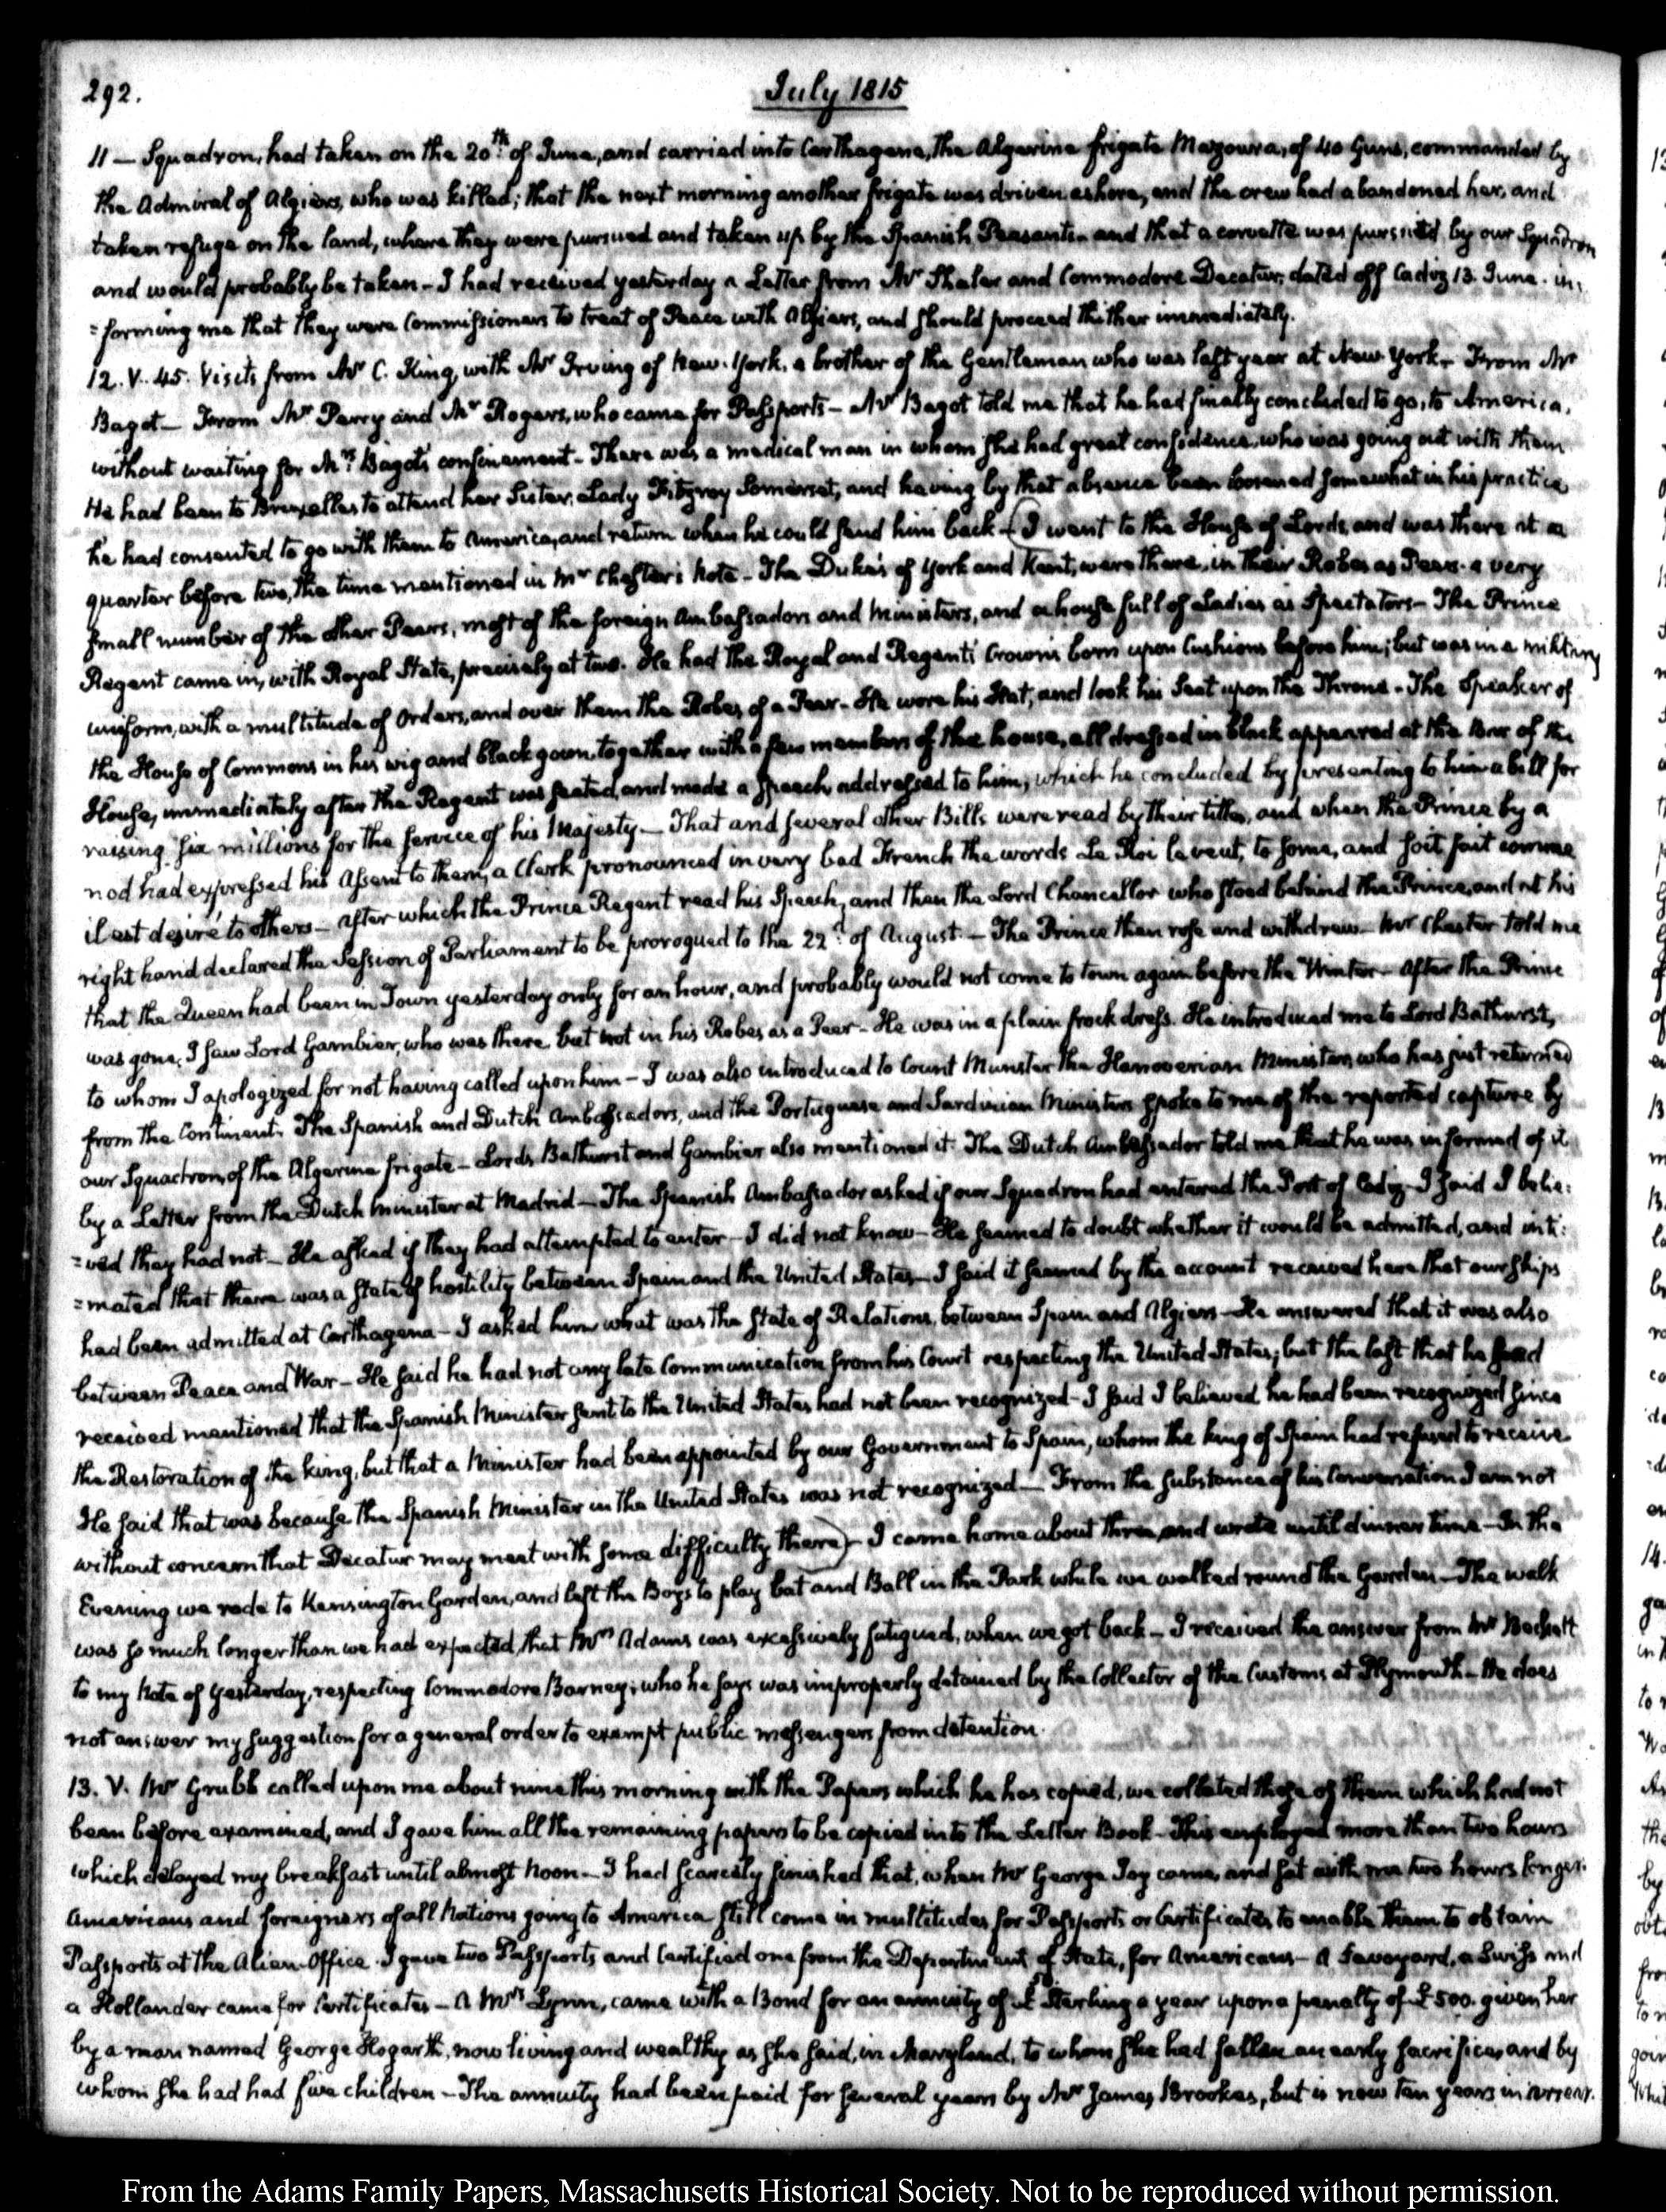 292.
July 1815
11 — Squadron, had taken on the 20th. of June, and carried into Carthagena, the Algerine frigate Mazoura, of 40 Guns, commanded by
the Admiral of Algiers, who was killed; that the next morning another frigate was driven ashore, and the crew had abandoned her, and
taken refuge on the land, where they were pursued and taken up by the Spanish Peasants — and that a corvette was pursued by our Squadron
and would probably be taken — I had received yesterday a Letter from Mr Shaler and Commodore Decatur, dated off Cadiz 13. June. in:
=forming me that they were Commissioners to treat of Peace with Algiers, and should proceed thither immediately.
12. V. 45. Visits from Mr C. King, with Mr Irving of New-York, a brother of the Gentleman who was last year at New York — From Mr
Bagot — From Mr Perry and Mr Rogers, who came for Passports — Mr Bagot told me that he had finally concluded to go, to America,
without waiting for Mrs Bagot's confinement — There was a medical man in whom she had great confidence, who was going out with them
He had been to Bruxelles to attend her Sister, Lady Fitzroy Somerset, and having by that absence been loosened somewhat in his practice
he had consented to go with them to America, and return when he could send him back — (I went to the House of Lords, and was there at a
quarter before two, the time mentioned in Mr Chester's Note — The Dukes of York and Kent, were there, in their Robes as Peers. a very
small number of the other Peers, most of the foreign Ambassadors and Ministers, and a house full of Ladies as Spectators — The Prince
Regent came in, with Royal State, precisely at two. He had the Royal and Regent's Crowns born upon Cushions before him; but was in a military
uniform, with a multitude of Orders, and over them the Robes of a Peer — He wore his Hat, and took his Seat upon the Throne. — The Speaker of
the House of Commons in his wig and black gown, together with a few members of the house, all dressed in black appeared at the Bar of the
House, immediately after the Regent was seated, and made a speech addressed to him; which he concluded by presenting to him a bill for
raising six millions for the service of his Majesty — That and several other Bills were read by their titles, and when the Prince by a
nod had expressed his Assent to them, a Clerk pronounced in very bad French the words Le Roi le veut, to some, and soit fait comme
il est desiré to others — After which the Prince Regent read his Speech, and then the Lord Chancellor who stood behind the Prince, and at his
right hand declared the Session of Parliament to be prorogued to the 22d. of August. — The Prince then rose and withdrew — Mr Chester told me
that the Queen had been in Town yesterday only for an hour, and probably would not come to town again before the Winter — After the Prince
was gone, I saw Lord Gambier, who was there but not in his Robes as a Peer — He was in a plain frock dress. He introduced me to Lord Bathurst,
to whom I apologized for not having called upon him — I was also introduced to Count Munster the Hanoverian Minister, who has just returned
from the Continent. The Spanish and Dutch Ambassadors, and the Portuguese and Sardinian Ministers spoke to me of the reported capture by
our Squadron, of the Algerine frigate — Lords Bathurst and Gambier also mentioned it. The Dutch Ambassador told me that he was informed of it
by a Letter from the Dutch Minister at Madrid — The Spanish Ambassador asked if our Squadron had entered the Port of Cadiz — I said I belie:
=ved they had not — He asked if they had attempted to enter — I did not know — He seemed to doubt whether it would be admitted, and inti:
=mated that there was a state of hostility between Spain and the United States — I said it seemed by the account received here that our ships
had been admitted at Carthagena — I asked him what was the state of Relations, between Spain and Algiers — He answered that it was also
between Peace and War — He said he had not any late Communication from his Court respecting the United States; but the last that he had
received mentioned that the Spanish Minister sent to the United States had not been recognized — I said I believed he had been recognized since
the Restoration of the king, but that a Minister had been appointed by our Government to Spain, whom the king of Spain had refused to receive
He said that was because the Spanish Minister in the United States was not recognized — From the substance of his Conversation I am not
without concern that Decatur may meet with some difficulty there) — I came home about three, and wrote until dinner time — In the
Evening we rode to Kensington Garden, and left the Boys to play bat and Ball in the Park while we walked round the Garden — The walk
was so much longer than we had expected, that Mrs Adams was excessively fatigued, when we got back — I received the answer from Mr Beckett
to my Note of yesterday, respecting Commodore Barney; who he says was improperly detained by the Collector of the Customs at Plymouth — He does
not answer my suggestion for a general order to exempt public messengers from detention.
13. V. Mr Grubb called upon me about nine this morning with the Papers which he has copied, we collated those of them which had not
been before examined, and I gave him all the remaining papers to be copied into the Letter Book — This employed more than two hours
which delayed my breakfast until almost Noon — I had scarcely finished that, when Mr George Joy came, and sat with me two hours longer.
Americans and foreigners of all Nations going to America still come in multitudes for Passports or Certificates to enable them to obtain
Passports at the Alien-Office. I gave two Passports and Certified one from the Department of State, for Americans — A Savoyard, a Swiss and
a Hollander came for Certificates — A Mrs Lynn, came with a Bond for an annuity of £ Sterling a year upon a penalty of £500. given her
by a man named George Hogarth, now living and wealthy as she said, in Maryland, to whom she had fallen an early sacrifice, and by
whom she had had five children — The annuity had been paid for several years by Mr James Brookes, but is now ten years in arrear.
From the Adams Family Papers, Massachusetts Historical Society. Not to be reproduced without permission.